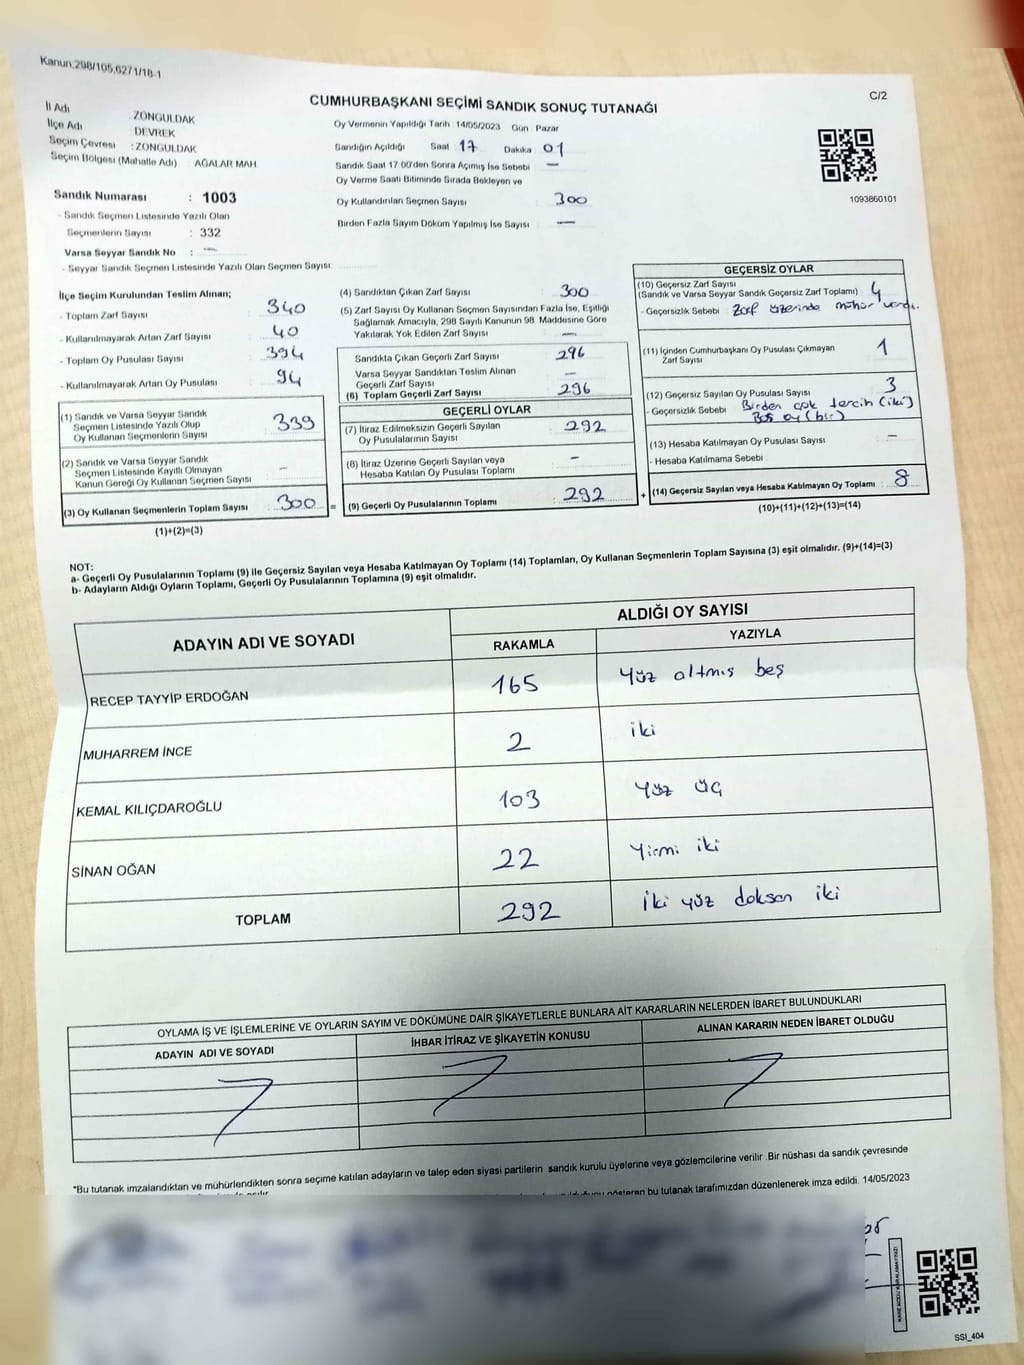 Kanun.298/105,6271/18-1
C/2
CUMHURBAŞKANI SEÇİMİ SANDIK SONUÇ TUTANAĞI
İl Adı : ZONGULDAK
İlçe Adı : DEVREK
Seçim Çevresi : ZONGULDAK
Seçim Bölgesi (Mahalle Adı) : AĞALAR MAH.
Oy Vermenin Yapıldığı Tarih 14/05/2023 Gün Pazar
Sandığın Açıldığı Saat 17 Dakika 01
Sandık Saat 17:00'den Sonra Açımış İse Sebebi —
Oy Verme Saati Bitiminde Sırada Bekleyen ve
Oy Kullandırılan Seçmen Sayısı 300
Birden Fazla Sayım Döküm Yapılmış İse Sayısı —
1093860101
Sandık Numarası : 1003
- Sandık Seçmen Listesinde Yazılı Olan
Seçmenlerin Sayısı : 332
Varsa Seyyar Sandık No : —
- Seyyar Sandık Seçmen Listesinde Yazılı Olan Seçmen Sayısı:
İlçe Seçim Kurulundan Teslim Alınan;
- Toplam Zarf Sayısı 340
- Kullanılmayarak Artan Zarf Sayısı 40
- Toplam Oy Pusulası Sayısı 394
- Kullanılmayarak Artan Oy Pusulası 94
(1) Sandık ve Varsa Seyyar Sandık
Seçmen Listesinde Yazılı Olup
Oy Kullanan Seçmenlerin Sayısı 339
(2) Sandık ve Varsa Seyyar Sandık
Seçmen Listesinde Kayıtlı Olmayan
Kanun Gereği Oy Kullanan Seçmen Sayısı –
(3) Oy Kullanan Seçmenlerin Toplam Sayısı : 300 =
(1)+(2)=(3)
(4) Sandıktan Çıkan Zarf Sayısı 300
(5) Zarf Sayısı Oy Kullanan Seçmen Sayısından Fazla İse, Eşitliği
Sağlamak Amacıyla, 298 Sayılı Kanunun 98. Maddesine Göre
Yakılarak Yok Edilen Zarf Sayısı —
Sandıkta Çıkan Geçerli Zarf Sayısı 296
Varsa Seyyar Sandıktan Teslim Alınan
Geçerli Zarf Sayısı —
(6) Toplam Geçerli Zarf Sayısı 296
GEÇERLİ OYLAR
(7) İtiraz Edilmeksizin Geçerli Sayılan
Oy Pusulalarının Sayısı 292
(8) İtiraz Üzerine Geçerli Sayılan veya
Hesaba Katılan Oy Pusulası Toplamı –
(9) Geçerli Oy Pusulalarının Toplamı 292 +
GEÇERSİZ OYLAR
(10) Geçersiz Zarf Sayısı
(Sandık ve Varsa Seyyar Sandık Geçersiz Zarf Toplamı) 4
- Geçersizlik Sebebi : Zarf üzerinde mühür vardı.
(11) İçinden Cumhurbaşkanı Oy Pusulası Çıkmayan
Zarf Sayısı 1
(12) Geçersiz Sayılan Oy Pusulası Sayısı 3
- Geçersizlik Sebebi Birden çok tercih (iki)
Boş oy (bir)
(13) Hesaba Katılmayan Oy Pusulası Sayısı –
- Hesaba Katılmama Sebebi :
(14) Geçersiz Sayılan veya Hesaba Katılmayan Oy Toplamı : 8
(10)+(11)+(12)+(13)=(14)
NOT:
a- Geçerli Oy Pusulalarının Toplamı (9) ile Geçersiz Sayılan veya Hesaba Katılmayan Oy Toplamı (14) Toplamları, Oy Kullanan Seçmenlerin Toplam Sayısına (3) eşit olmalıdır. (9)+(14)=(3)
b- Adayların Aldığı Oyların Toplamı, Geçerli Oy Pusulalarının Toplamına (9) eşit olmalıdır.
ADAYIN ADI VE SOYADI
ALDIĞI OY SAYISI
RAKAMLA YAZIYLA
RECEP TAYYİP ERDOĞAN 165 Yüz altmış beş
MUHARREM İNCE 2 iki
KEMAL KILIÇDAROĞLU 103 Yüz üç
SİNAN OĞAN 22 Yirmi iki
TOPLAM 292 İki yüz doksan iki
OYLAMA İŞ VE İŞLEMLERİNE VE OYLARIN SAYIM VE DÖKÜMÜNE DAİR ŞİKAYETLERLE BUNLARA AİT KARARLARIN NELERDEN İBARET BULUNDUKLARI
ADAYIN ADI VE SOYADI İHBAR İTİRAZ VE ŞİKAYETİN KONUSU ALINAN KARARIN NEDEN İBARET OLDUĞU
*Bu tutanak imzalandıktan ve mühürlendikten sonra seçime katılan adayların ve talep eden siyasi partilerin sandık kurulu üyelerine veya gözlemcilerine verilir. Bir nüshası da sandık çevresinde
gösteren bu tutanak tarafımızdan düzenlenerek imza edildi. 14/05/2023
SSI_404